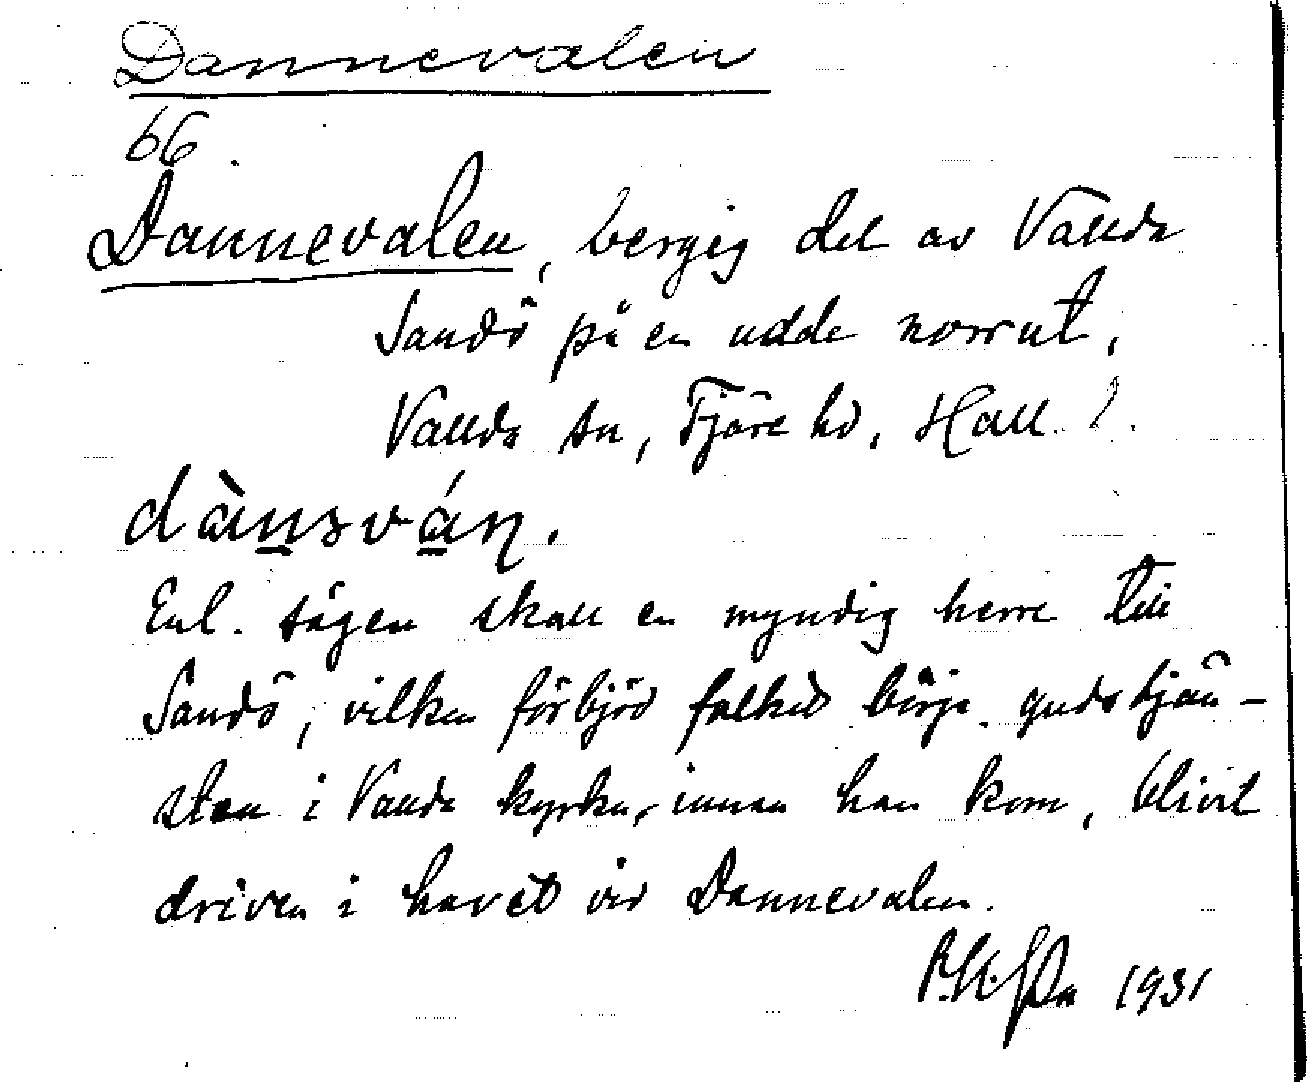 Dannevalen
66.
Dannevalen, bergig del av Vallda
Sandö på en udde norrut,
Vallda sn, Fjäre hd, Hall.
Enl. sägen skall en myndig herre till
Sandö, vilken förbjöd folket börja gudstjän-
sten i Vallda kyrka, innan han kom, blivit
driven i havet vid Dannevalen.
1931